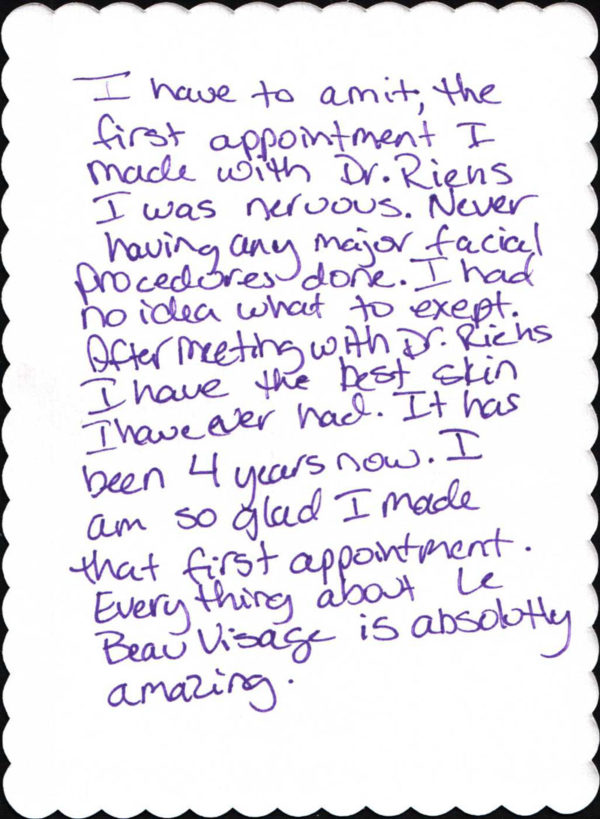 I have to amit, the
first appointment I
made with Dr. Riehs
I was nervous. Never
having any major facial
procedures done. I had
no idea what to exept.
After meeting with Dr. Riehs
I have the best skin
I have ever had. It has
been 4 years now. I
am so glad I made
that first appointment.
Everything about Le
Beau Visage is absolutly
amazing.